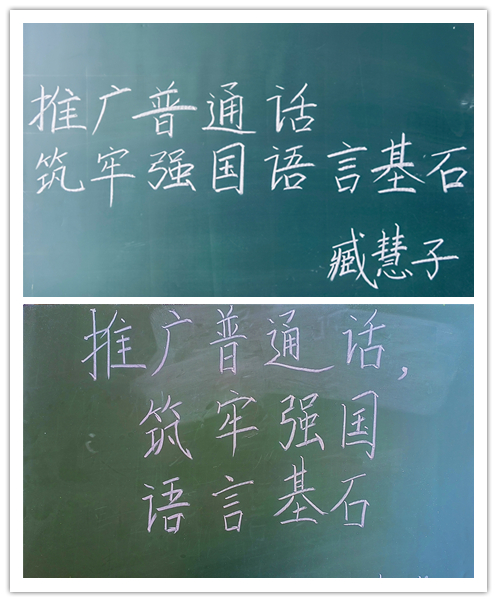 推广普通话
筑牢强国语言基石
臧慧子
推广普通话，
筑牢强国
语言基石